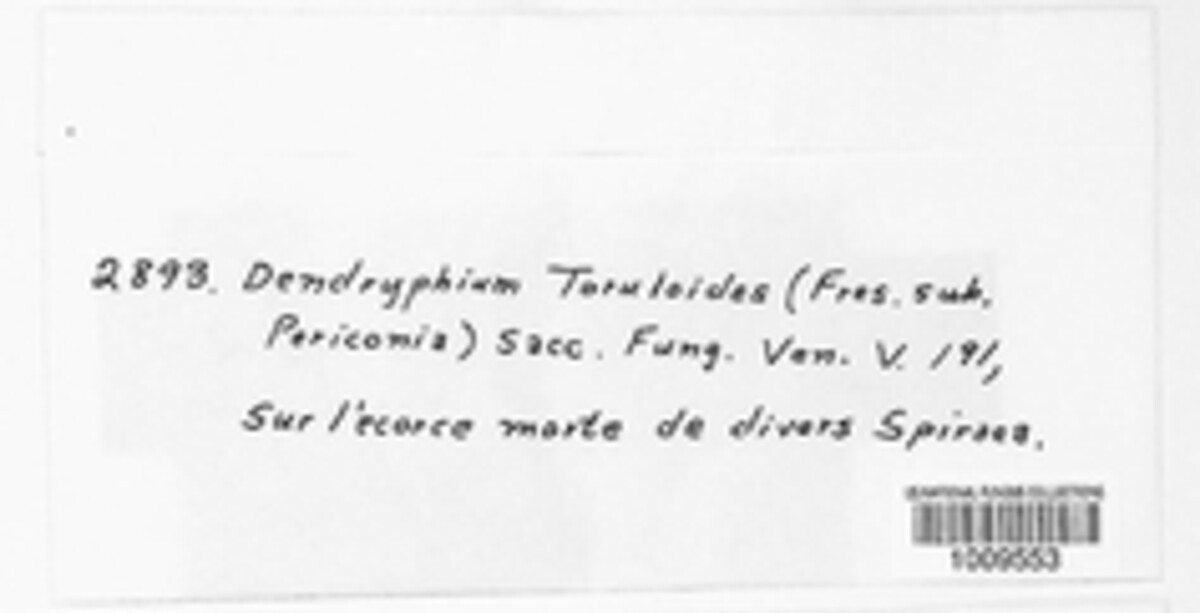 2893. Dendryphium Toruloides (Fres. sub.
Periconia) Sacc. Fung. Ven. V. 191,
Sur l'ecorce morte de divers Spiraea.
US NATIONAL FUNGUS COLLECTIONS
1009553